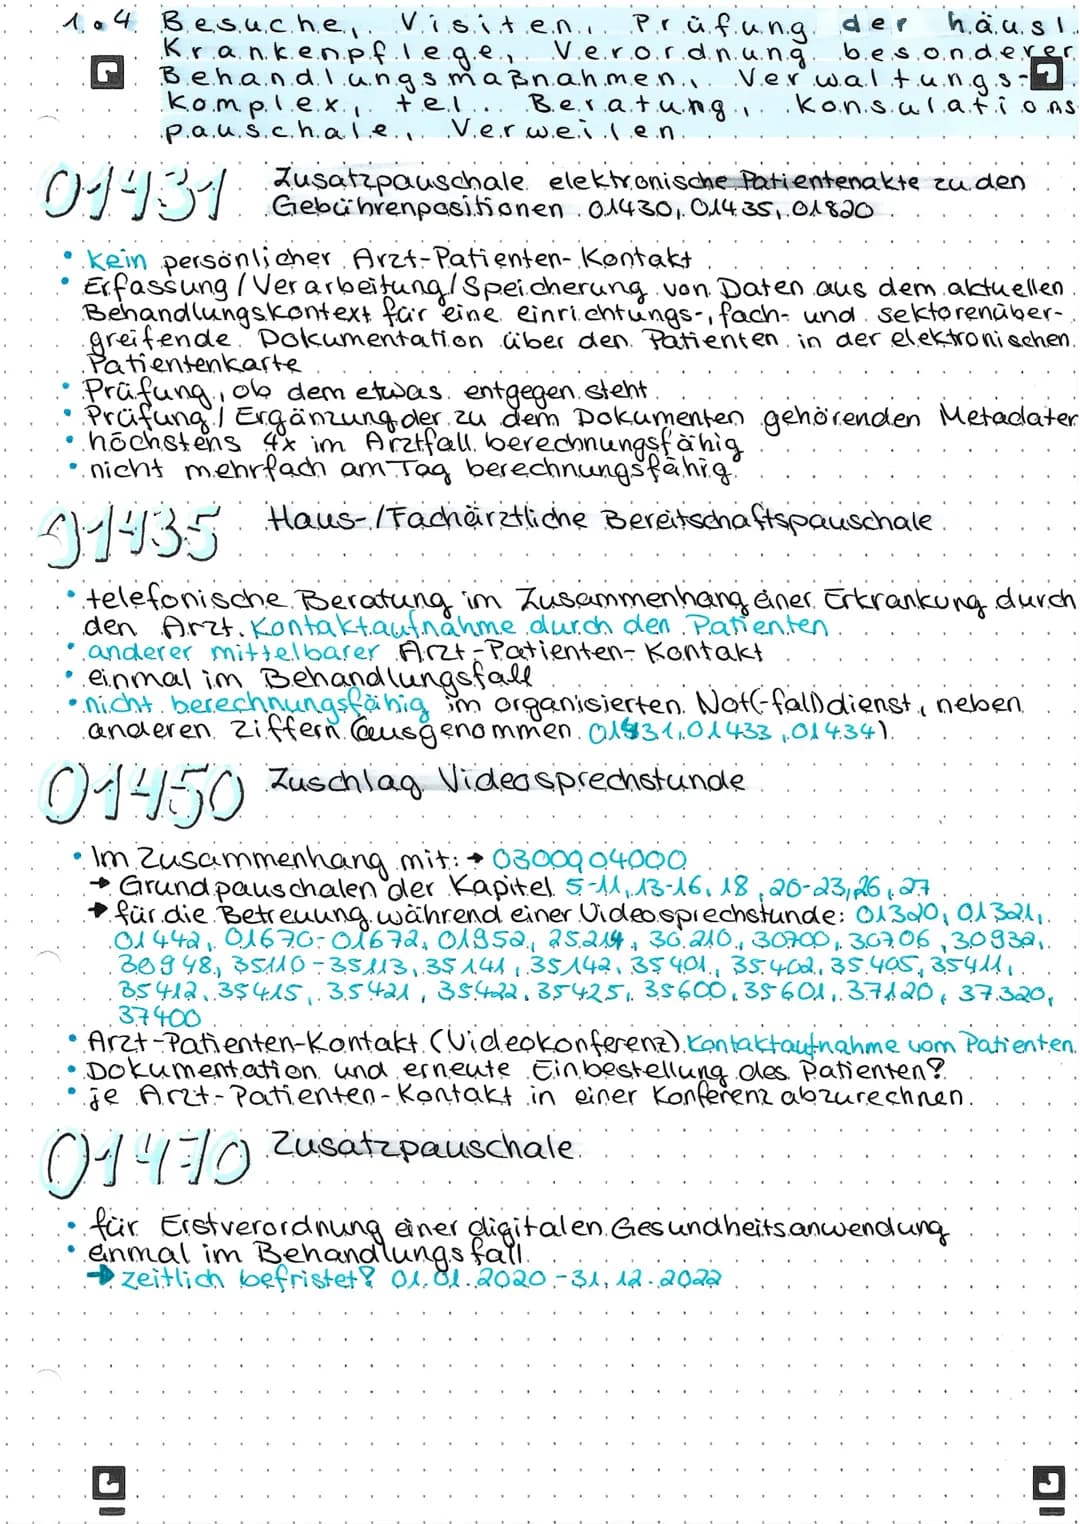 1.4 Besuche, Visiten, Prüfung der häusl.
Krankenpflege, Verordnung besonderer
Behandlungsmaßnahmen, Verwaltungs-
komplex, tel. Beratung, Konsulations
pauschale, Verweilen
01431 Zusatzpauschale elektronische Patientenakte zu den
Gebührenpositionen 01430, 01435, 01820
• kein persönlicher Arzt-Patienten-Kontakt
• Erfassung/Verarbeitung/Speicherung von Daten aus dem aktuellen
Behandlungskontext für eine einrichtungs-, fach- und sektorenüber-
greifende Dokumentation über den Patienten in der elektronischen
Patientenkarte
• Prüfung, ob dem etwas entgegen steht
• Prüfung/Ergänzung der zu dem Dokumenten gehörenden Metadaten
• höchstens 4x im Arztfall berechnungsfähig
• nicht mehrfach am Tag berechnungsfähig
01435 Haus-/Fachärztliche Bereitschaftspauschale
• telefonische Beratung im Zusammenhang einer Erkrankung durch
den Arzt. Kontaktaufnahme durch den Patienten
• anderer mittelbarer Arzt-Patienten-Kontakt
• einmal im Behandlungsfall
• nicht berechnungsfähig im organisierten Not(-fall)dienst, neben
anderen Ziffern (ausgenommen 01431, 01433, 01434)
01450 Zuschlag Videosprechstunde
• Im Zusammenhang mit: → 03000 04000
→ Grundpauschalen der Kapitel 5-11, 13-16, 18, 20-23, 26, 27
→ für die Betreuung während einer Videosprechstunde: 01320, 01321,
01442, 01670-01672, 01952, 25214, 30210, 30700, 30706, 30932,
30948, 35110-35113, 35141, 35142, 35401, 35402, 35405, 35411,
35412, 35415, 35421, 35422, 35425, 35600, 35601, 37120, 37320,
37400
• Arzt-Patienten-Kontakt (Videokonferenz) Kontaktaufnahme vom Patienten
• Dokumentation und erneute Einbestellung des Patienten?
• je Arzt-Patienten-Kontakt in einer Konferenz abzurechnen.
01470 Zusatzpauschale
• für Erstverordnung einer digitalen Gesundheitsanwendung
• einmal im Behandlungsfall
→ zeitlich befristet? 01.01.2020-31.12.2022